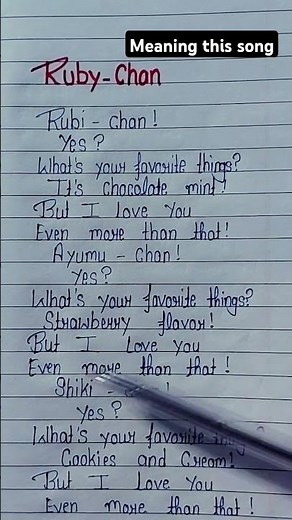 Meaning this song
Ruby-Chan
Rubi - chan!
Yes?
What's your favorite things?
It's chocolate mint!
But I Love You
Even more than that!
Ayumu - Chan!
Yes?
What's your favorite things?
Strawberry flavor!
But I Love You
Even more than that!
Shiki - !
Yes?
What's your favorite
Cookies and Cream!
But I Love You
Even more than that!